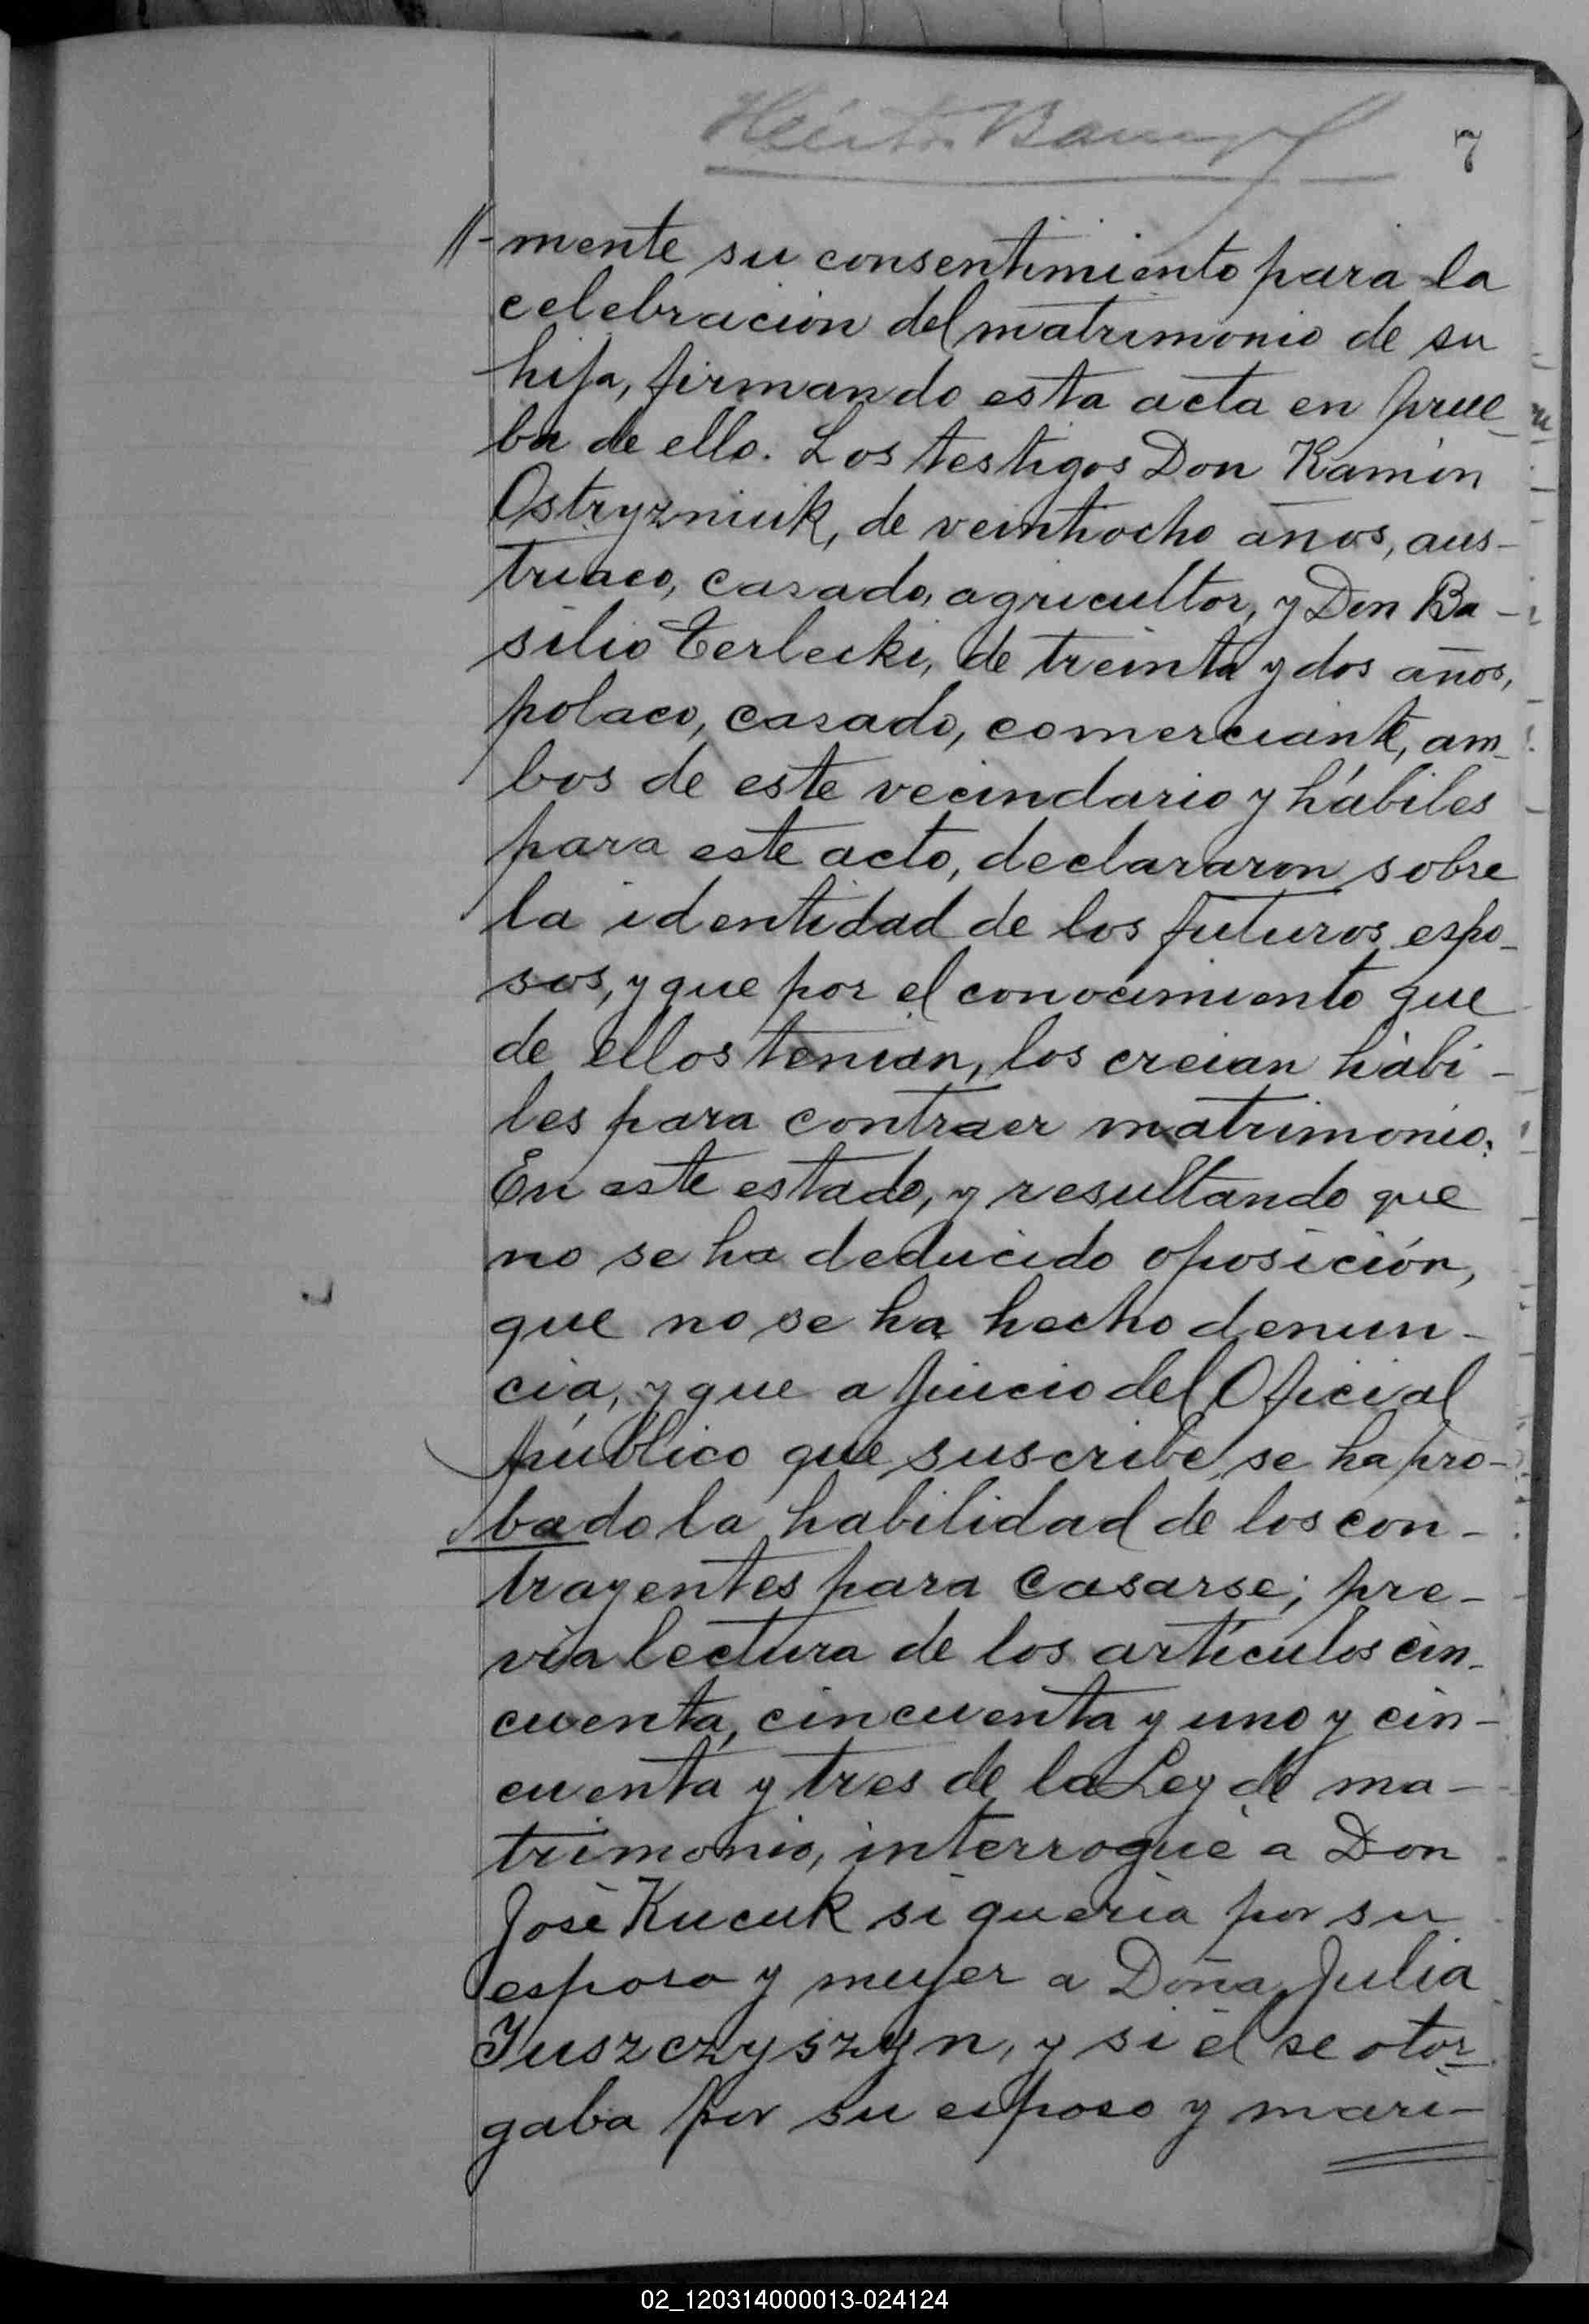 7
//-mente su consentimiento para la
celebración del matrimonio de su
hija, firmando esta acta en prue_
ba de ello. Los testigos Don Ramón
Ostryzniuk, de veintiocho años, aus-
triaco, casado, agricultor, y Don Ba-
silio Terlecki, de treinta y dos años,
polaco, casado, comerciante, am_
bos de este vecindario y hábiles
para este acto, declararon sobre
la identidad de los futuros espo_
sos, y que por el conocimiento que
de ellos tenían, los creian hábi-
les para contraer matrimonio.
En este estado, y resultando que
no se ha deducido oposición,
que no se ha hecho denun-
cia, y que a juicio del Oficial
público que suscribe, se ha pro-
bado la habilidad de los con-
trayentes para casarse; pre-
via lectura de los artículos cin_
cuenta, cincuenta y uno y cin-
cuenta y tres de la Ley de ma-
trimonio, interrogué a Don
José Kucuk si quería por su
esposa y mujer a Doña Julia
Juszczyszyn, y si él se otor_
gaba por su esposo y mari-
02_120314000013-024124